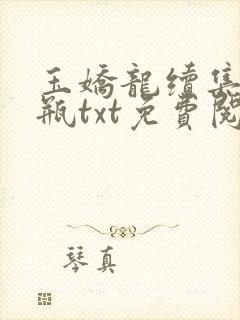 玉嬌龍續集
瓶txt免費閱
琴真